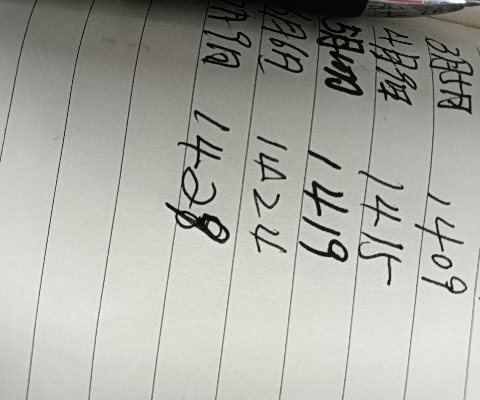 3月4日 1409
4月9日 1415
5月10日 1419
6月6日 1424
7月9日 1428